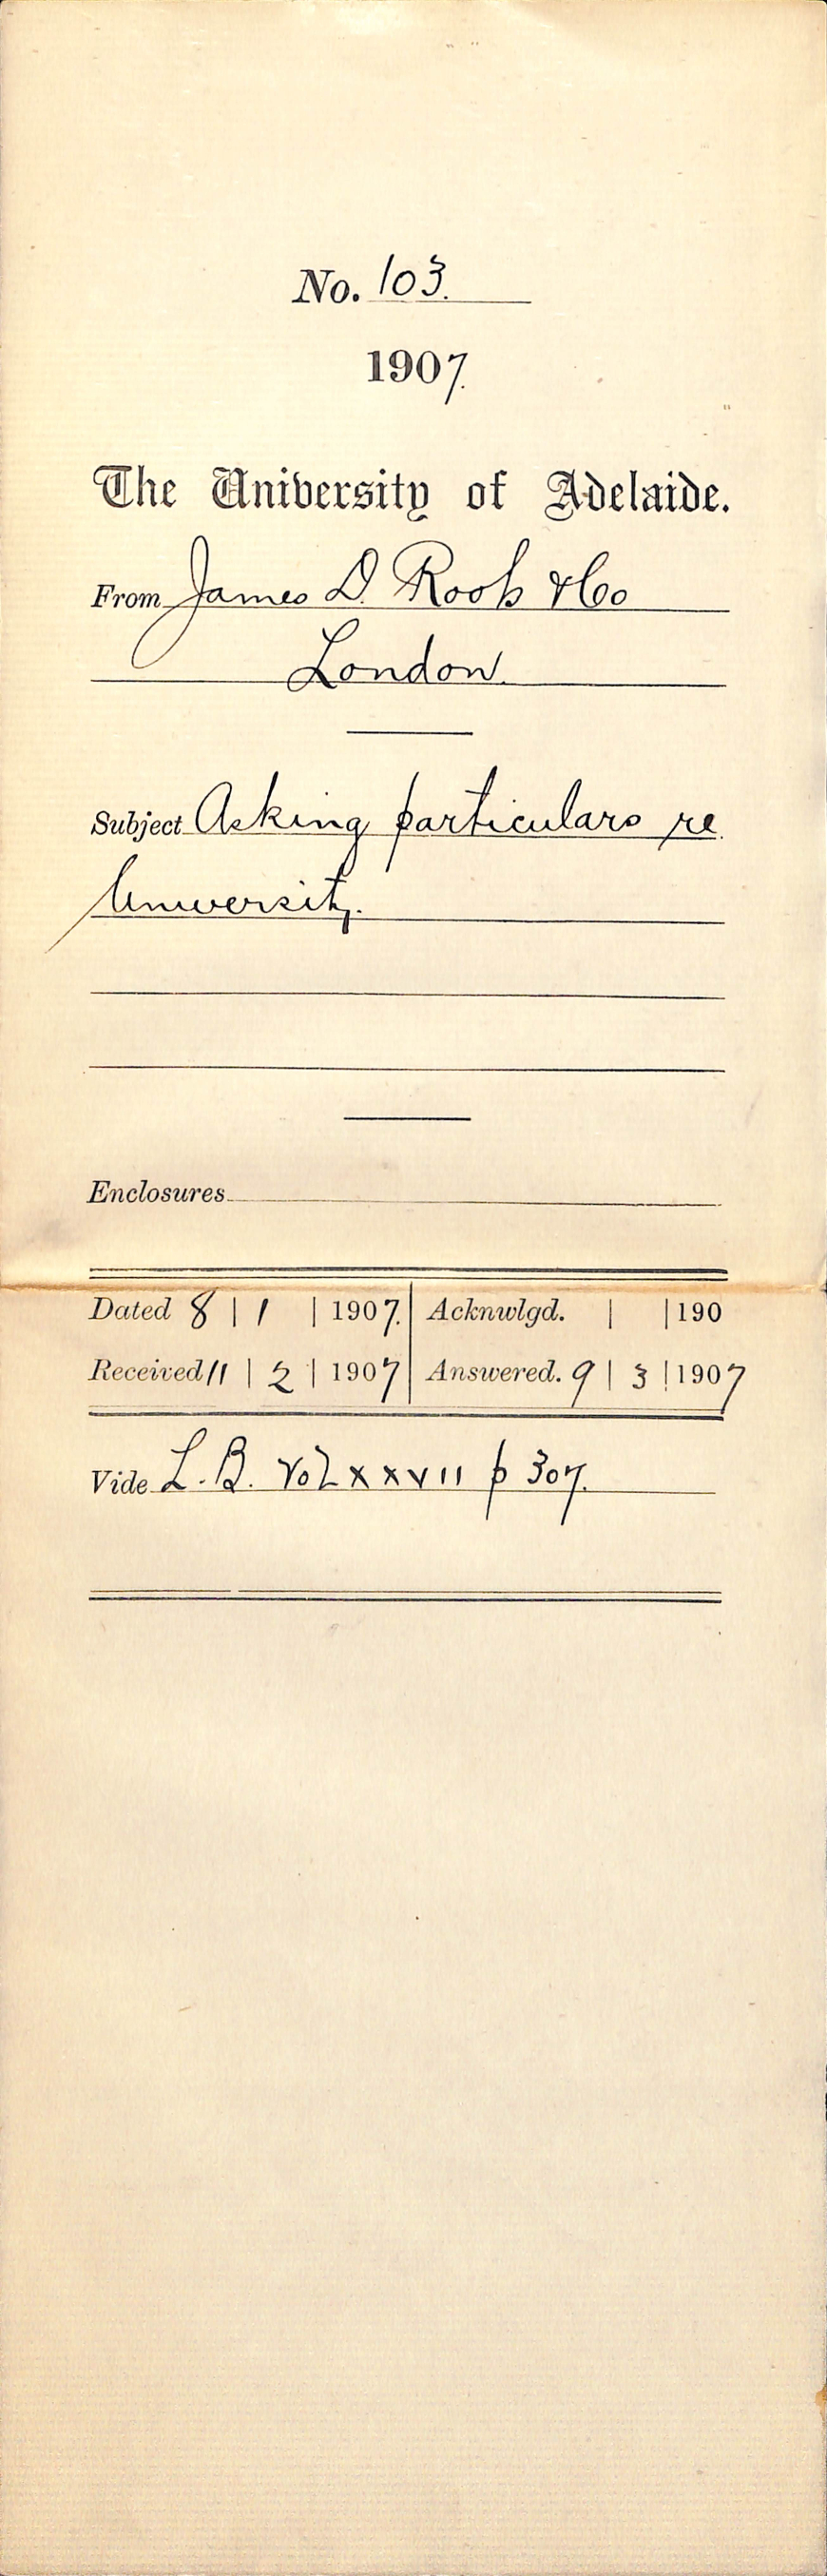 No. 103.
1907.
The University of Adelaide.
From James D. Roots & Co
London.
Subject Asking particulars re
University.
Enclosures
Dated 8 | 1 | 1907. Acknwlgd. | | 190
Received 11 | 2 | 1907 Answered. 9 | 3 | 1907
Vide L. B. Vol xxvii p 307.